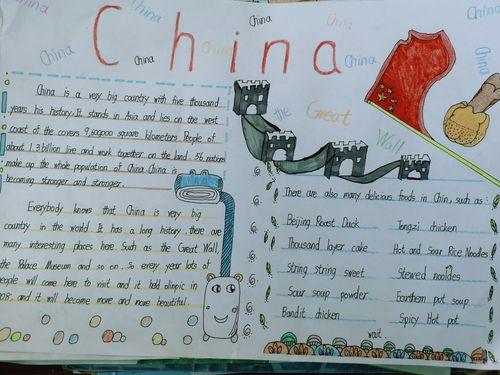 China
China
China
China
China
China
China
China
China
China
China
the Great Wall
China is a very big country with five thousand
years his history. It stands in Asia and lies on the west
coast of the covers 9,600000 square kilometers. People of
about 1.3 billion live and work together on the land. 56 nations
make up the whole population of China. China is
becoming stronger and stronger.
Everybody knows that China is very big
country in the world. It has a long history. there are
many interesting places here. Such as the Great Wall,
the Palace Museum and so on. So every year lots of
people will come here to visit. and it hold olinpic in
and it will become more and more beautiful
There are also many delicious foods in Chin, such as:
Beijing Roast Duck
Tongzi chicken
Thousand layer cake
Hot and Sour Rice Noodles
String string sweet
Stewed noodles
Sour soup powder
Earthern pot soup
Bandit chicken
Spicy Hot pot
wait